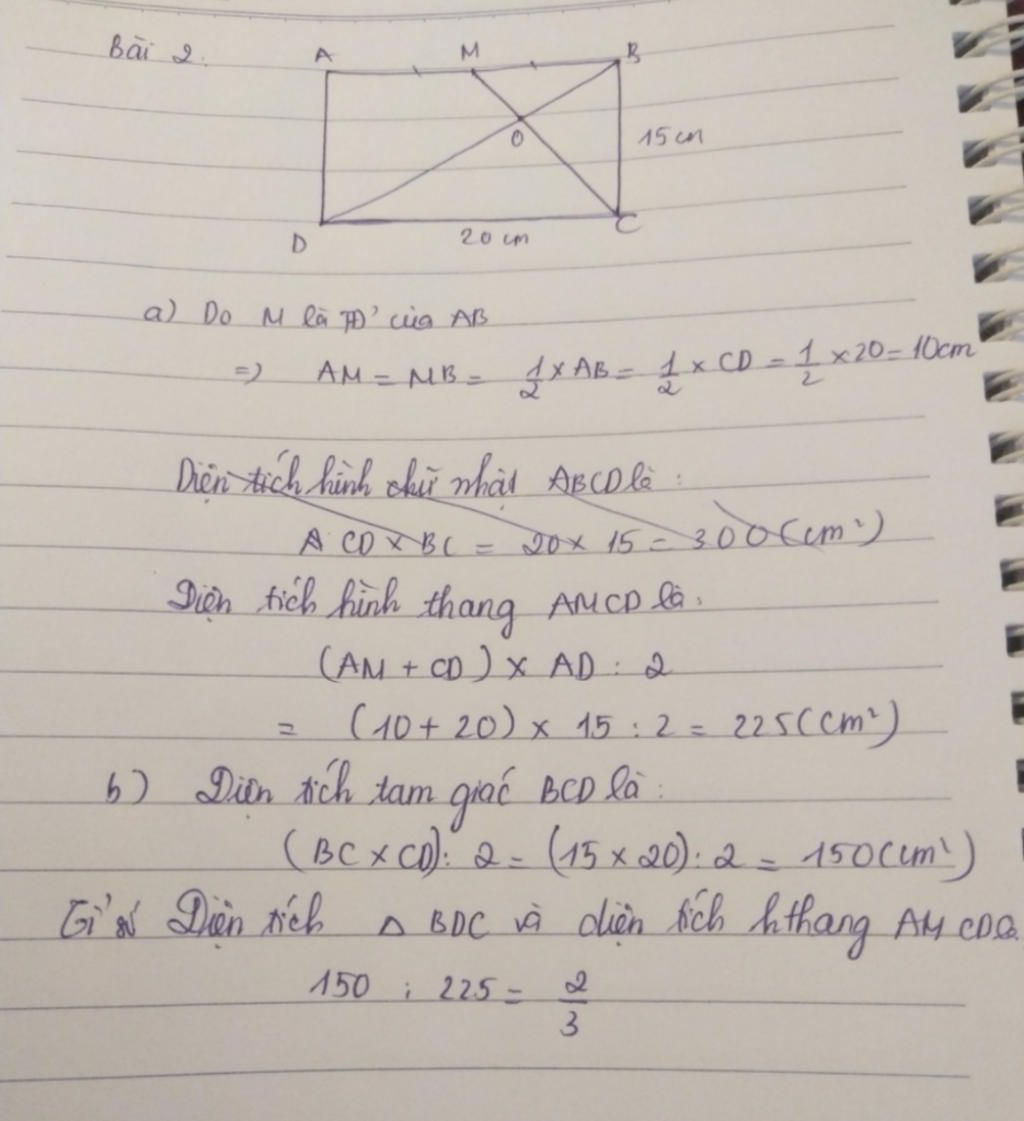 Bài 2.
A M B
O
15 cm
D 20 cm C
a) Do M là TĐ' của AB
=> AM = MB = 1/2 × AB = 1/2 × CD = 1/2 × 20 = 10cm
Diện tích hình chữ nhật ABCD là :
A CD × BC = 20 × 15 = 300 (cm²)
Diện tích hình thang AMCD là :
(AM + CD) × AD : 2
= (10 + 20) × 15 : 2 = 225 (cm²)
b) Diện tích tam giác BCD là :
(BC × CD) : 2 = (15 × 20) : 2 = 150 (cm²)
Tỉ số Diện tích △ BDC và diện tích hthang AMCD là
150 : 225 = 2/3